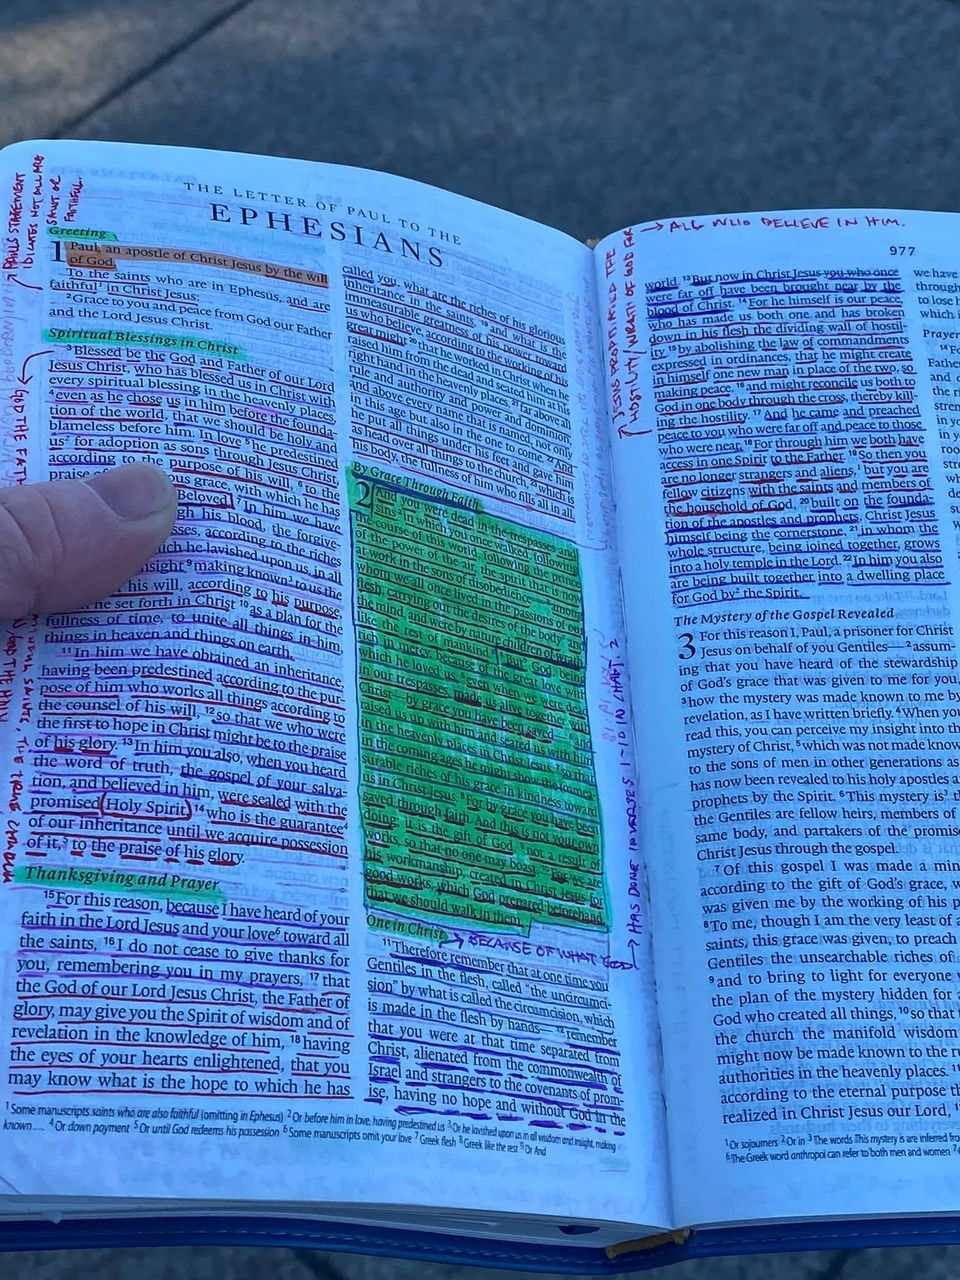 THE LETTER OF PAUL TO THE
EPHESIANS
Greeting
1 Paul, an apostle of Christ Jesus by the will
of God,
To the saints who are in Ephesus, and are
faithful¹ in Christ Jesus:
²Grace to you and peace from God our Father
and the Lord Jesus Christ.
Spiritual Blessings in Christ
³Blessed be the God and Father of our Lord
Jesus Christ, who has blessed us in Christ with
every spiritual blessing in the heavenly places,
⁴even as he chose us in him before the founda-
tion of the world, that we should be holy and
blameless before him. In love ⁵he predestined
us² for adoption as sons through Jesus Christ
according to the purpose of his will, ⁶to the
praise of
us grace, with which he has
Beloved. ⁷In him we have
gh his blood, the forgive-
sses, according to the riches
ich he lavished upon us, in all
nsight ⁹making known³ to us the
his will, according to his purpose
he set forth in Christ ¹⁰as a plan for the
fullness of time, to unite all things in him,
things in heaven and things on earth.
¹¹In him we have obtained an inheritance,
having been predestined according to the pur-
pose of him who works all things according to
the counsel of his will, ¹²so that we who were
the first to hope in Christ might be to the praise
of his glory. ¹³In him you also, when you heard
the word of truth, the gospel of your salva-
tion, and believed in him, were sealed with the
promised (Holy Spirit) ¹⁴who is the guarantee⁴
of our inheritance until we acquire possession
of it,⁵ to the praise of his glory.
Thanksgiving and Prayer
¹⁵For this reason, because I have heard of your
faith in the Lord Jesus and your love⁶ toward all
the saints, ¹⁶I do not cease to give thanks for
you, remembering you in my prayers, ¹⁷that
the God of our Lord Jesus Christ, the Father of
glory, may give you the Spirit of wisdom and of
revelation in the knowledge of him, ¹⁸having
the eyes of your hearts enlightened, that you
may know what is the hope to which he has
called you, what are the riches of his glorious
inheritance in the saints, ¹⁹and what is the
immeasurable greatness of his power toward
us who believe, according to the working of his
great might ²⁰that he worked in Christ when he
raised him from the dead and seated him at his
right hand in the heavenly places, ²¹far above all
rule and authority and power and dominion,
and above every name that is named, not only
in this age but also in the one to come. ²²And
he put all things under his feet and gave him
as head over all things to the church, ²³which is
his body, the fullness of him who fills all in all.
By Grace Through Faith
2 And you were dead in the trespasses and
sins ²in which you once walked, following
the course of this world, following the prince
of the power of the air, the spirit that is now
at work in the sons of disobedience— ³among
whom we all once lived in the passions of our
flesh, carrying out the desires of the body⁷ and
the mind, and were by nature children of wrath,
like the rest of mankind.⁸ ⁴But⁹ God, being
rich in mercy, because of the great love with
which he loved us, ⁵even when we were dead
in our trespasses, made us alive together with
Christ—by grace you have been saved— ⁶and
raised us up with him and seated us with him
in the heavenly places in Christ Jesus, ⁷so that
in the coming ages he might show the immea-
surable riches of his grace in kindness toward
us in Christ Jesus. ⁸For by grace you have been
saved through faith. And this is not your own
doing; it is the gift of God, ⁹not a result of
works, so that no one may boast. ¹⁰For we are
his workmanship, created in Christ Jesus for
good works, which God prepared beforehand,
that we should walk in them.
One in Christ
→ BECAUSE OF WHAT GOD
→ HAS DONE IN VERSES 1-10 IN CHAPT. 2
¹¹Therefore remember that at one time you
Gentiles in the flesh, called "the uncircumci-
sion" by what is called the circumcision, which
is made in the flesh by hands— ¹²remember
that you were at that time separated from
Christ, alienated from the commonwealth of
Israel and strangers to the covenants of prom-
ise, having no hope and without God in the
¹Some manuscripts saints who are also faithful (omitting in Ephesus) ²Or before him in love, having predestined us ³Or he lavished upon us in all wisdom and insight, making
known . . . ⁴Or down payment ⁵Or until God redeems his possession ⁶Some manuscripts omit your love ⁷Greek flesh ⁸Greek like the rest ⁹Or And
PAUL'S STATEMENT
NOT ALL ARE
SAINT OR
FAITHFUL.
GOD THE FA
JESUS PROPITIATED THE
HOSTILITY/WRATH OF GOD FOR
→ ALL WHO BELIEVE IN HIM.
977
world. ¹³But now in Christ Jesus you who once
were far off have been brought near by the
blood of Christ. ¹⁴For he himself is our peace,
who has made us both one and has broken
down in his flesh the dividing wall of hostil-
ity ¹⁵by abolishing the law of commandments
expressed in ordinances, that he might create
in himself one new man in place of the two, so
making peace, ¹⁶and might reconcile us both to
God in one body through the cross, thereby kill-
ing the hostility. ¹⁷And he came and preached
peace to you who were far off and peace to those
who were near. ¹⁸For through him we both have
access in one Spirit to the Father. ¹⁹So then you
are no longer strangers and aliens,¹ but you are
fellow citizens with the saints and members of
the household of God, ²⁰built on the founda-
tion of the apostles and prophets, Christ Jesus
himself being the cornerstone, ²¹in whom the
whole structure, being joined together, grows
into a holy temple in the Lord. ²²In him you also
are being built together into a dwelling place
for God by² the Spirit.
The Mystery of the Gospel Revealed
3 For this reason I, Paul, a prisoner for Christ
Jesus on behalf of you Gentiles— ²assum-
ing that you have heard of the stewardship
of God's grace that was given to me for you,
³how the mystery was made known to me by
revelation, as I have written briefly. ⁴When you
read this, you can perceive my insight into the
mystery of Christ, ⁵which was not made know
to the sons of men in other generations as
has now been revealed to his holy apostles a
prophets by the Spirit. ⁶This mystery is³ th
the Gentiles are fellow heirs, members of
same body, and partakers of the promis
Christ Jesus through the gospel.
⁷Of this gospel I was made a min
according to the gift of God's grace, w
was given me by the working of his p
⁸To me, though I am the very least of a
saints, this grace was given, to preach
Gentiles the unsearchable riches of
⁹and to bring to light for everyone
the plan of the mystery hidden for a
God who created all things, ¹⁰so that
the church the manifold wisdom
might now be made known to the r
authorities in the heavenly places. ¹¹
according to the eternal purpose th
realized in Christ Jesus our Lord, ¹
¹Or sojourners ²Or in ³The words This mystery is are inferred fro
⁶The Greek word anthropoi can refer to both men and women ⁷
we have
through
to lose h
which i
Prayer